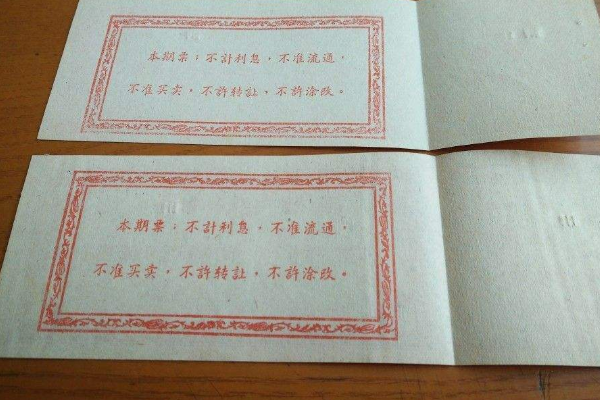 本期票；不計利息，不准流通，
不准买卖，不許转让，不許涂改。
本期票；不計利息，不准流通，
不准买卖，不許转让，不許涂改。